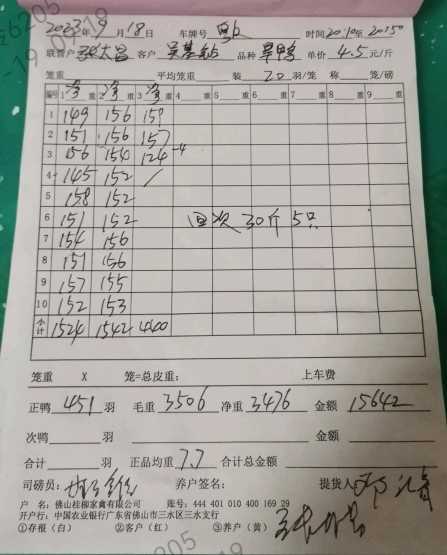 2023年9月18日 车牌号 时间20:10至20:50
联营户 客户 吴基钻 品种 旱鸭 单价 4.5元/斤
笼重 平均笼重 装 20 羽/笼 称 笼/磅
编号 1净重 2净重 3净重 4 重 5 重 6 重 7 重 8 重 9 重
1 149 156 159
2 151 156 157
3 156 154 124 -4
4 145 152 /
5 158 152
6 151 152 回次30斤5只
7 154 156
8 151 156
9 157 155
10 152 153
小计 1524 1542 440
笼重 X 笼=总皮重: 上车费
正鸭 451 羽 毛重 3506 净重 3476 金额 15642
次鸭 羽 金额
合计 羽 正品均重 7.7 合计总金额
司磅员: 养户签名: 提货人
户 名: 佛山桂柳家禽有限公司 账号: 444 401 010 400 169 29
开户行: 中国农业银行广东省佛山市三水区三水支行
①存根(白) ②客户(红) ③养户(黄)